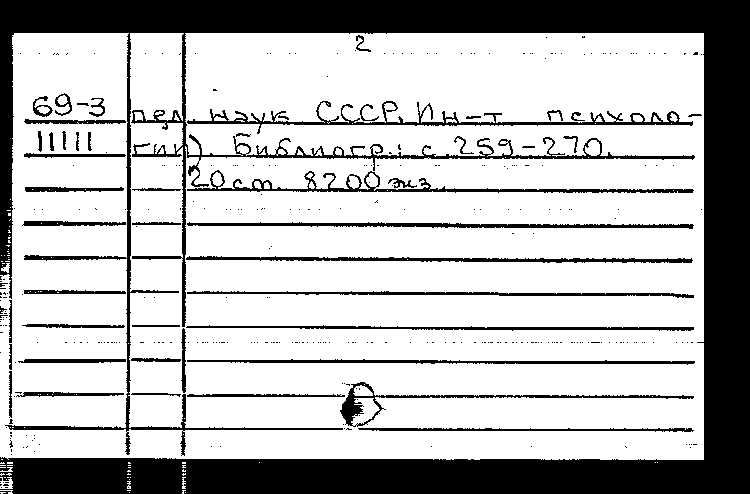 2
69-3 пед наук СССР. Ин-т психоло-
11111 гии). Библиогр.: с. 259-270.
20 см. 8200 экз.